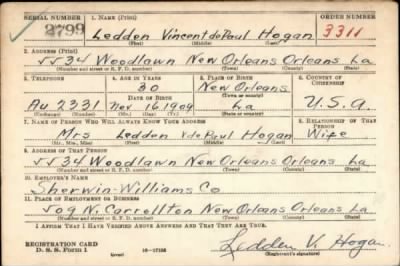 SERIAL NUMBER 1. NAME (Print) ORDER NUMBER
2799 Ledden Vincent de Paul Hogan 3311
(First) (Middle) (Last)
2. ADDRESS (Print)
5534 Woodlawn New Orleans Orleans La
(Number and street or R. F. D. number) (Town) (County) (State)
3. TELEPHONE 4. AGE IN YEARS 5. PLACE OF BIRTH 6. COUNTRY OF CITIZENSHIP
30 New Orleans
DATE OF BIRTH (Town or county)
Au 2331 Nov 16, 1909 La U.S.A.
(Exchange) (Number) (Mo.) (Day) (Yr.) (State or country)
7. NAME OF PERSON WHO WILL ALWAYS KNOW YOUR ADDRESS 8. RELATIONSHIP OF THAT PERSON
Mrs Ledden V de Paul Hogan Wife
(Mr., Mrs., Miss) (First) (Middle) (Last)
9. ADDRESS OF THAT PERSON
5534 Woodlawn New Orleans Orleans La
(Number and street or R. F. D. number) (Town) (County) (State)
10. EMPLOYER'S NAME
Sherwin-Williams Co
11. PLACE OF EMPLOYMENT OR BUSINESS
509 N. Carrollton New Orleans Orleans La
(Number and street or R. F. D. number) (Town) (County) (State)
I AFFIRM THAT I HAVE VERIFIED ABOVE ANSWERS AND THAT THEY ARE TRUE.
REGISTRATION CARD
D. S. S. Form 1 16-17105 Ledden V. Hogan
(over) (Registrant's signature)